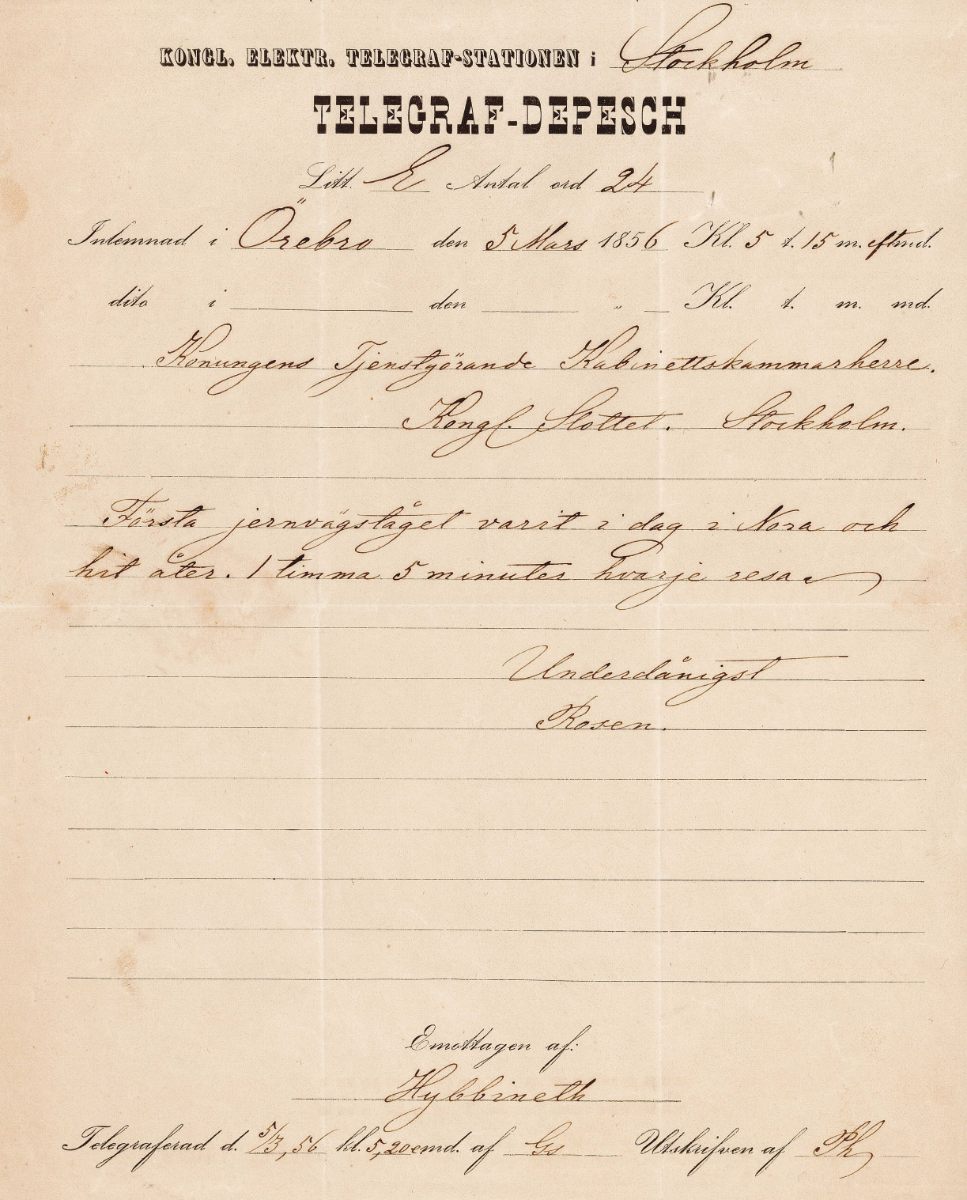 KONGL. ELEKTR. TELEGRAF-STATIONEN i Stockholm
TELEGRAF-DEPESCH
Litt. E Antal ord 24
Inlemnad i Örebro den 5 Mars 1856 Kl. 5 t. 15 m. eftmd.
dito i den " Kl. t. m. md.
Konungens Tjenstgörande Kabinettskammarherre.
Kongl. Slottet. Stockholm.
Första jernvägståget varit i dag i Nora och
hit åter. 1 timma 5 minuter hvarje resa.
Underdånigst
Rosen.
Emottagen af:
Hybbineth
Telegraferad d. 5/3, 56 kl. 5,20 emd. af Gs Utskrifven af Ph